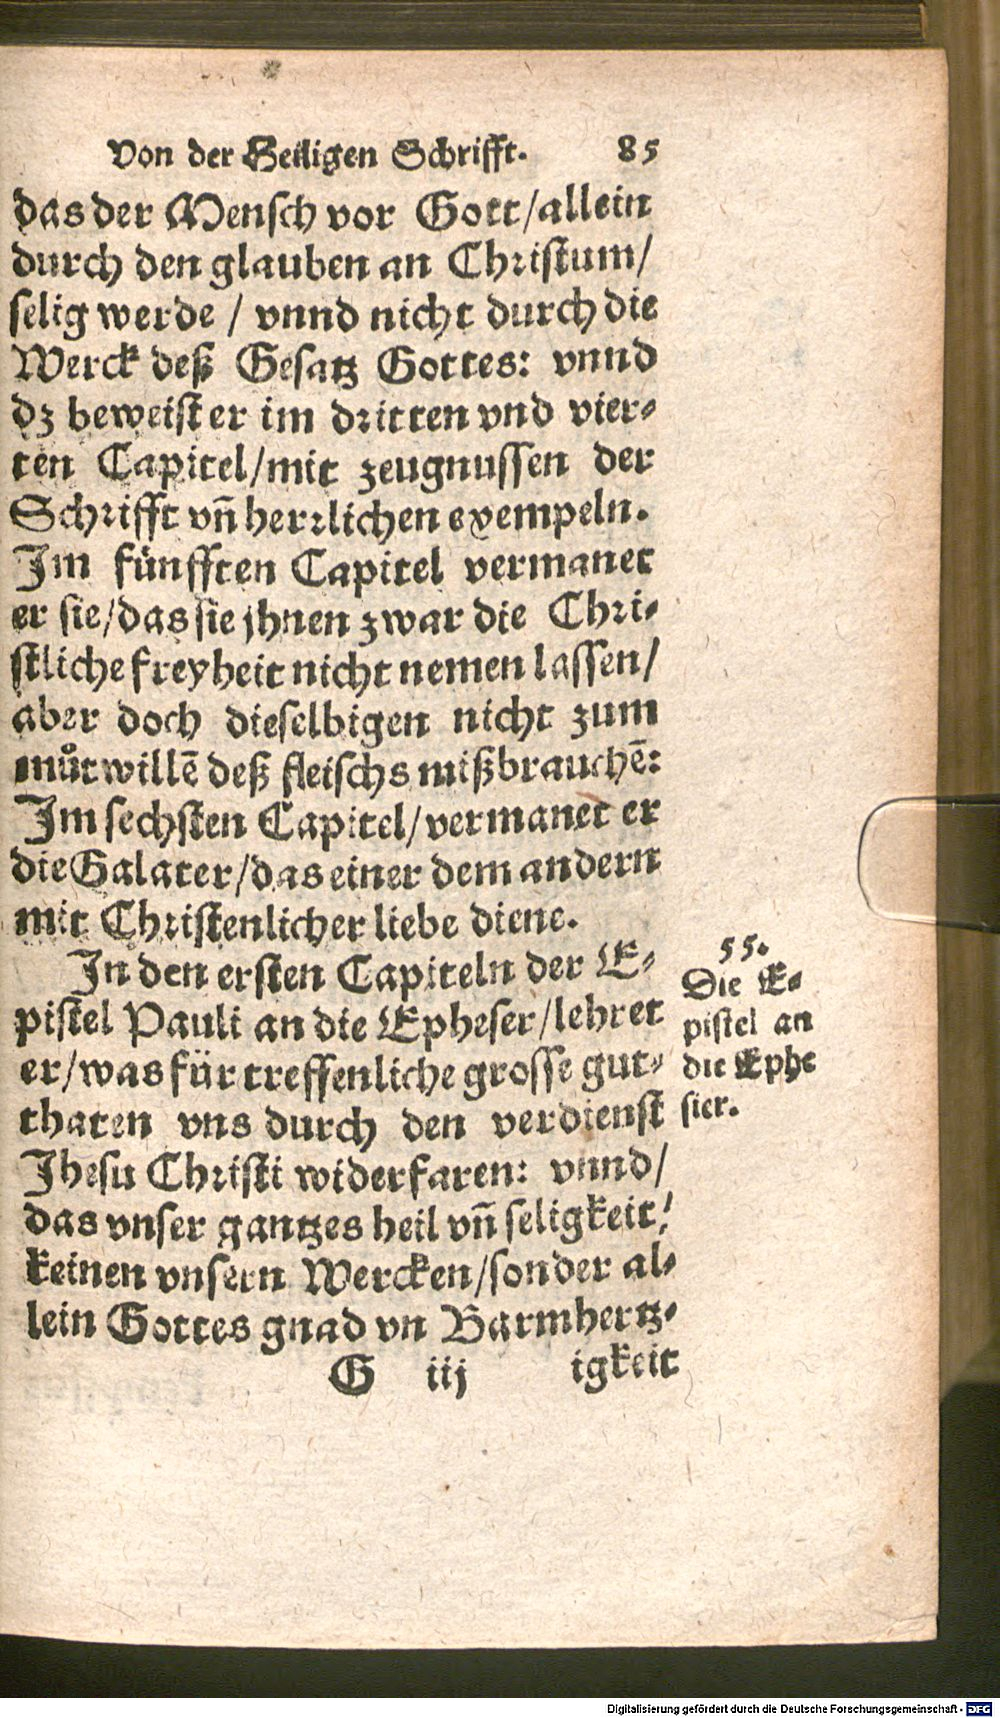 Von der Heiligen Schrifft. 85
das der Mensch vor Gott/allein
durch den glauben an Christum/
selig werde / vnnd nicht durch die
Werck deß Gesatz Gottes: vnnd
dz beweist er im dritten vnd vier-
ten Capitel/mit zeugnussen der
Schrifft vñ herrlichen exempeln.
Im fünfften Capitel vermanet
er sie/das sie jhnen zwar die Chri-
stliche freyheit nicht nemen lassen/
aber doch dieselbigen nicht zum
můtwillē deß fleischs mißbrauchē:
Im sechsten Capitel/vermanet er
die Galater/das einer dem andern
mit Christenlicher liebe diene.
In den ersten Capiteln der E-
pistel Pauli an die Epheser/lehret
er/was für treffenliche grosse gut-
thaten vns durch den verdienst
Jhesu Christi widerfaren: vnnd/
das vnser gantzes heil vñ seligkeit/
keinen vnsern Wercken/sonder al-
lein Gottes gnad vn Barmhertz-
G iij igkeit
55.
Die E-
pistel an
die Ephe
sier.
Digitalisierung gefördert durch die Deutsche Forschungsgemeinschaft - DFG